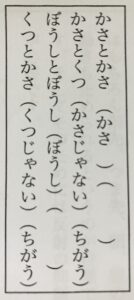 かさとかさ（かさ）（　　）
かさとくつ（かさじゃない）（ちがう）
ぼうしとぼうし（ぼうし）（　　）
くつとかさ（くつじゃない）（ちがう）